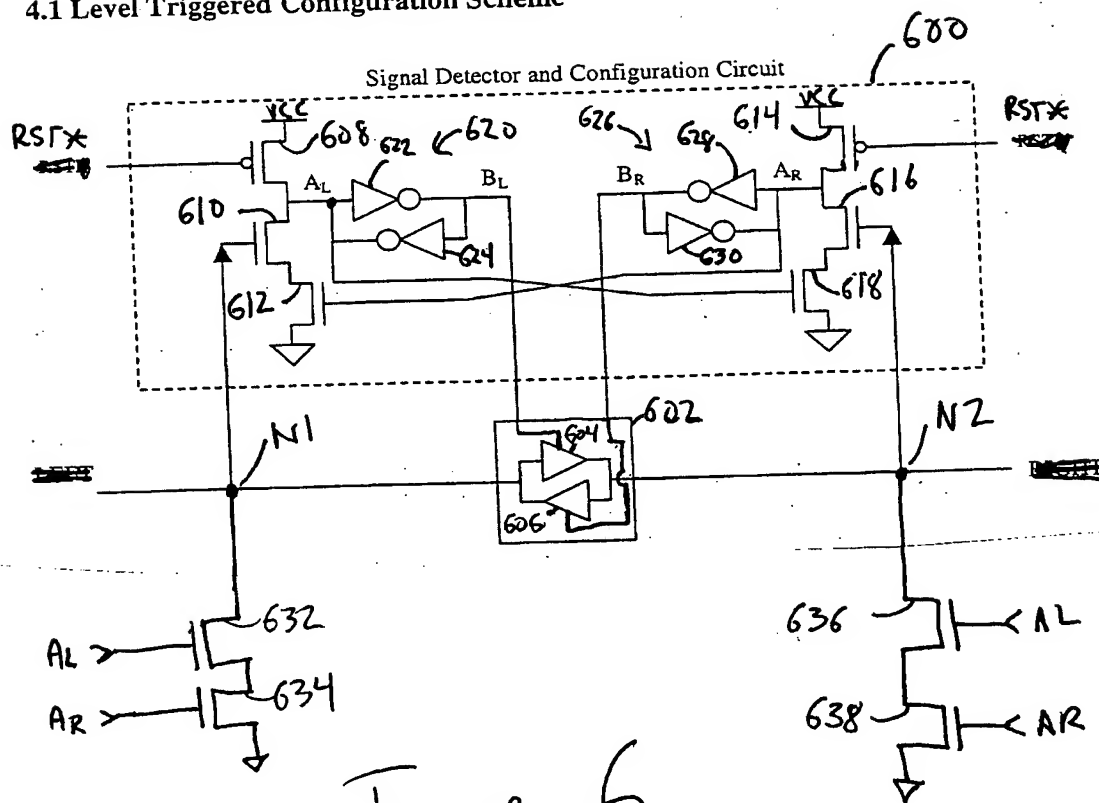 4.1 Level Triggered Configuration Scheme
600
Signal Detector and Configuration Circuit
VCC
VCC
RST*
RST*
608
622
620
626
628
614
AL
BL
BR
AR
616
610
624
630
612
618
N1
602
N2
604
606
632
636
AL
AL
634
638
AR
AR
6